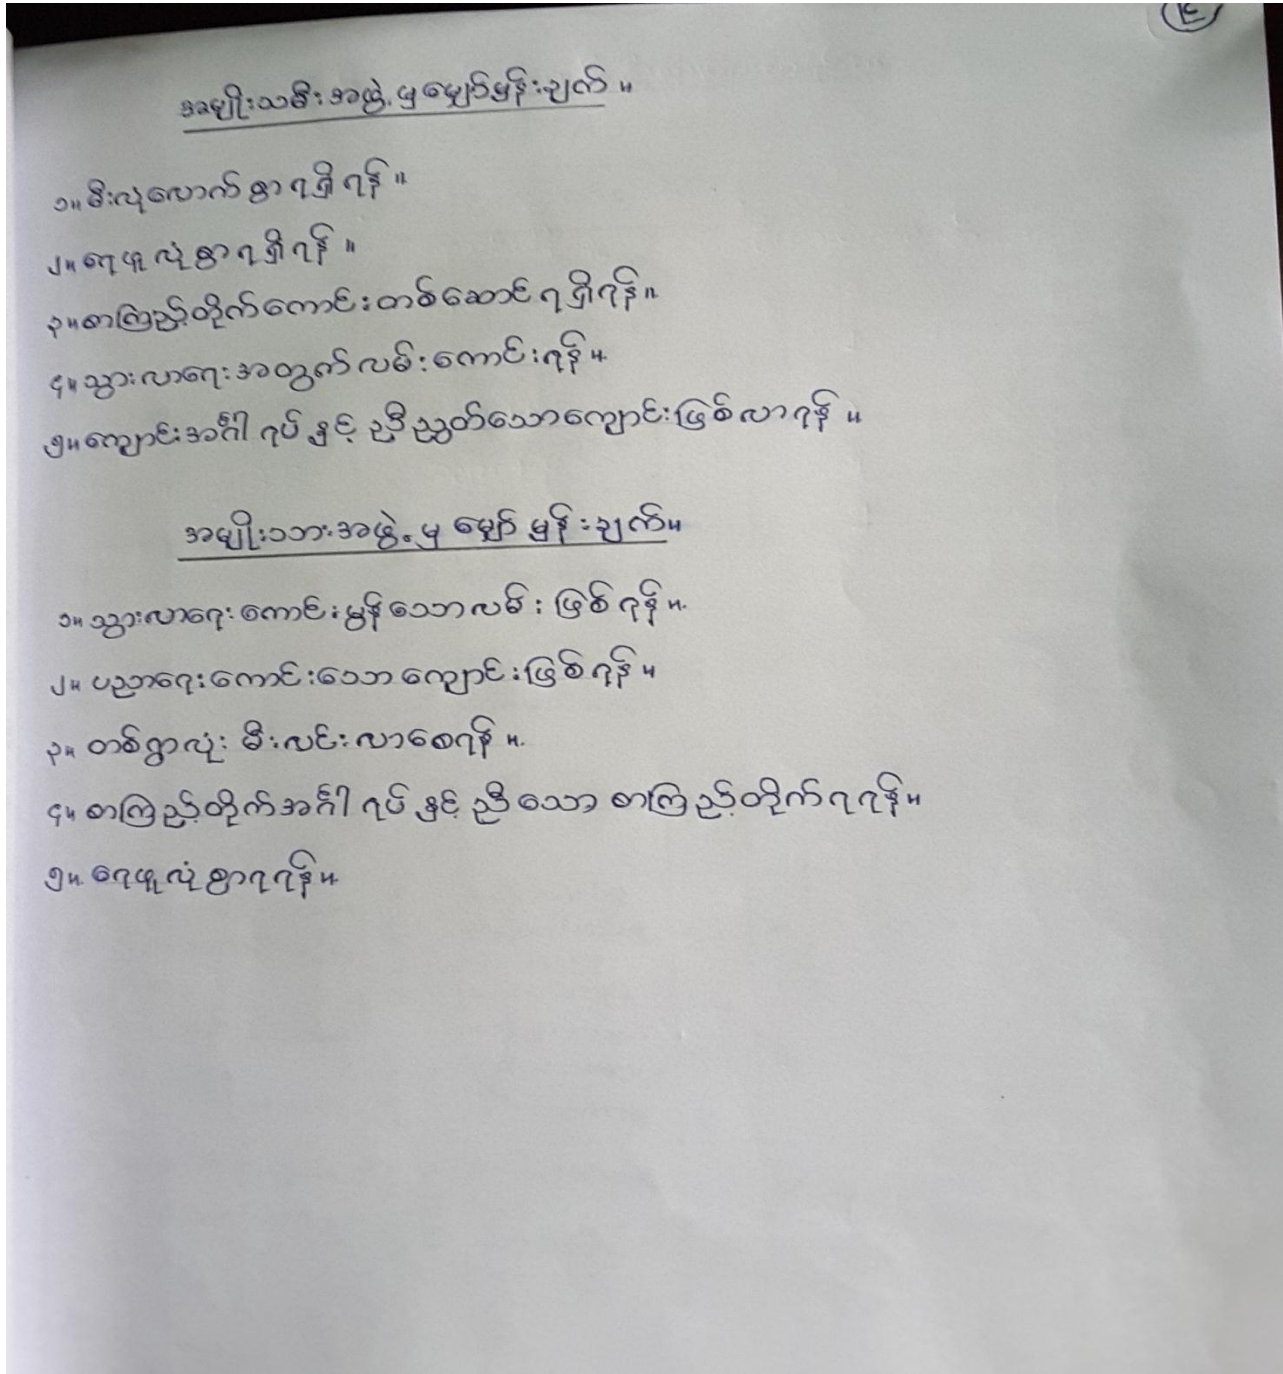 အမျိုးသမီးအဖွဲ့မှ မျှော်မှန်းချက် ။
၁။ မီးလုံလောက်စွာရရှိရန် ။
၂။ ရေဖူလုံစွာရရှိရန် ။
၃။ စာကြည့်တိုက်ကောင်းတစ်ဆောင်ရရှိရန် ။
၄။ သွားလာရေးအတွက်လမ်းကောင်းရန် ။
၅။ ကျောင်းအင်္ဂါရပ်နှင့် ညီညွတ်သောကျောင်းဖြစ်လာရန် ။
အမျိုးသားအဖွဲ့မှ မျှော်မှန်းချက် ။
၁။ သွားလာရေးကောင်းမွန်သောလမ်းဖြစ်ရန် ။
၂။ ပညာရေးကောင်းသောကျောင်းဖြစ်ရန် ။
၃။ တစ်ရွာလုံး မီးလင်းလာစေရန် ။
၄။ စာကြည့်တိုက်အင်္ဂါရပ်နှင့်ညီသော စာကြည့်တိုက်ရရန် ။
၅။ ရေဖူလုံစွာရရန် ။